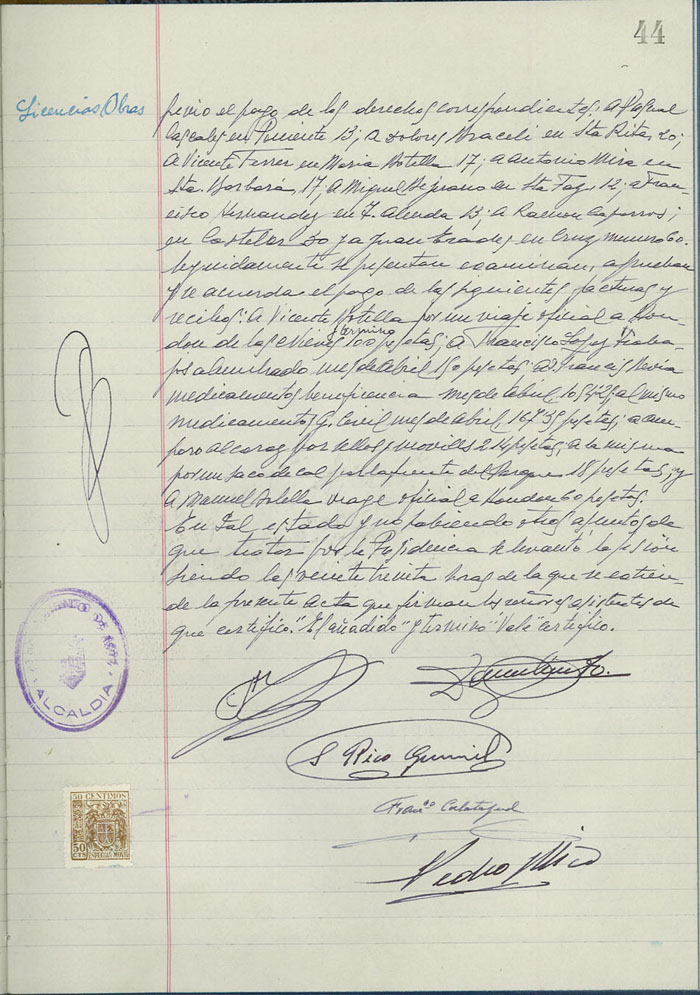 44
Licencias Obras
previo el pago de los derechos correspondientes: a Pascual
Cascales en Poniente 13; a Dolores Braceli en Sta Rita, 20;
a Vicente Ferrer en Maria Botella 17; a Antonio Mira en
Sta. Barbara, 17; a Miguel en Sta Faz, 12; a Fran-
cisco Hernandez en F. Alenda 13; a Ramon Caparros;
en Castelar 30 y a Juan Prades en Cruz numero 60.
Seguidamente se presentan examinan, aprueban
y se acuerda el pago de las siguientes facturas y
recibos: a Vicente Botella por un viaje oficial a Hon-
don de las Nieves termino 100 pesetas; a Francisco Lopez traba-
jos alumbrado mes de Abril 150 pesetas a Francis
medicamentos beneficencia mes de Abril, al mismo
medicamentos G. Civil mes de Abril, 167'35 pesetas; a am-
paro alcaraz por sellos y moviles 24 pesetas; a la misma
por un saco de cal para la fuente del Parque 18 pesetas; y
a Manuel Botella viage oficial a Hondon 60 pesetas.
En tal estado y no habiendo otros asuntos de
que tratar por la Presidencia se levantó la sesión
siendo las veinte treinta horas de la que se extien-
de la presente acta que firman los señores asistentes de
que certifico. "El añadido" "termino" "Vale" certifico.
S Rico
Franco Calatayud
Pedro Mico
DE
ALCALDIA
50 CENTIMOS
50
CTS
ESPECIAL MOVIL